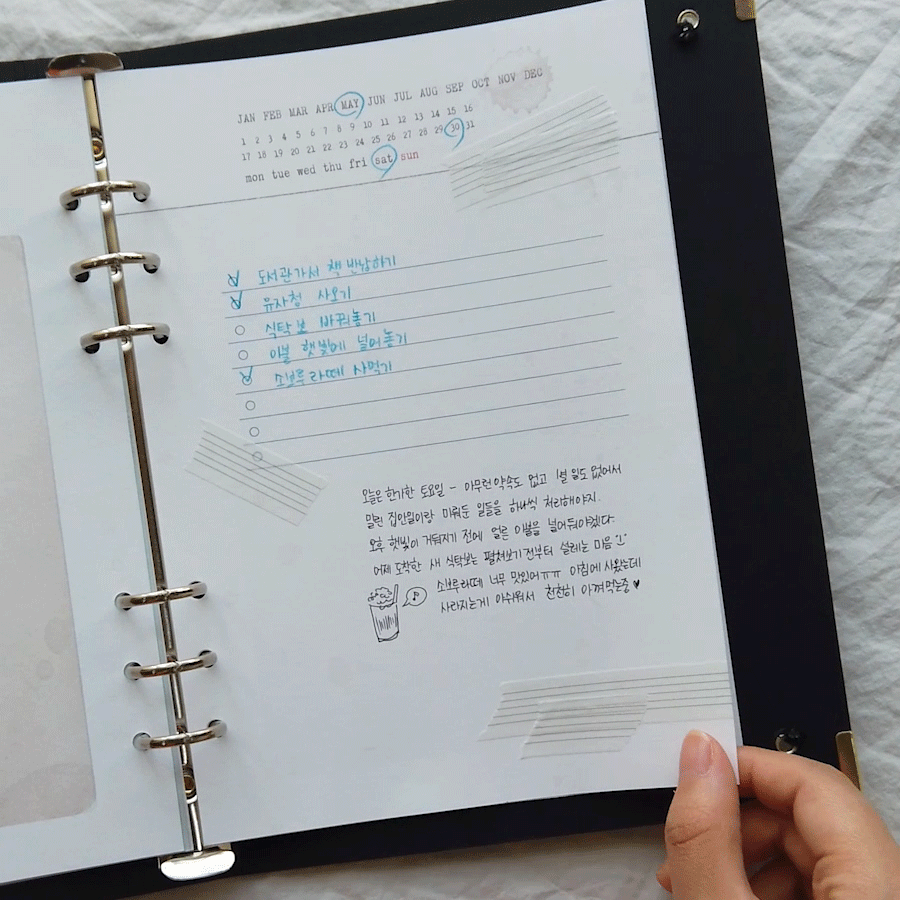 JAN FEB MAR APR MAY JUN JUL AUG SEP OCT NOV DEC
1 2 3 4 5 6 7 8 9 10 11 12 13 14 15 16
17 18 19 20 21 22 23 24 25 26 27 28 29 30 31
mon tue wed thu fri sat sun
도서관가서 책 반납하기
유자청 사오기
식탁보 바꿔놓기
이불 햇빛에 널어놓기
소보루라떼 사먹기
오늘은 한가한 토요일 - 아무런 약속도 없고 별 일도 없어서
밀린 집안일이랑 미뤄둔 일들을 하나씩 처리해야지.
오후 햇빛이 거둬지기 전에 얼른 이불을 널어둬야겠다.
어제 도착한 새 식탁보는 펼쳐보기 전부터 설레는 마음
소보루라떼 너무 맛있어ㅠㅠ 아침에 사왔는데
사라지는게 아쉬워서 천천히 아껴먹는중 ♥